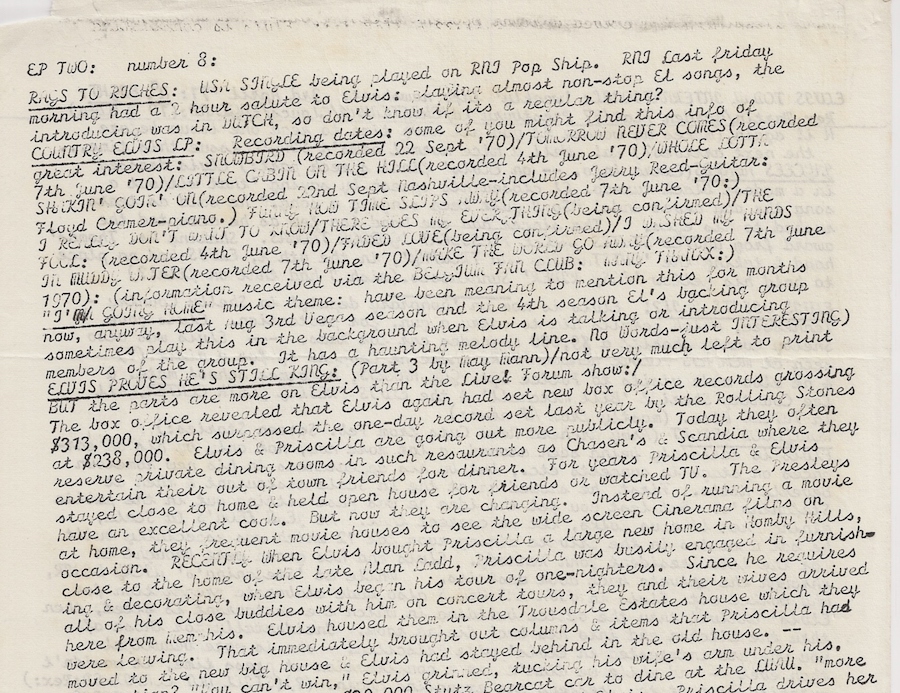 EP TWO: number 8:
RAGS TO RICHES: USA SINGLE being played on RNI Pop Ship. RNI Last friday
morning had a 2 hour salute to Elvis: playing almost non-stop El songs, the
introducing was in DUTCH, so don't know if its a regular thing?
COUNTRY ELVIS LP: Recording dates: some of you might find this info of
great interest: SNOWBIRD (recorded 22 Sept '70)/TOMORROW NEVER COMES(recorded
7th June '70)/LITTLE CABIN ON THE HILL(recorded 4th June '70)/WHOLE LOTTA
SHAKIN' GOIN' ON(recorded 22nd Sept Nashville-includes Jerry Reed-Guitar:
Floyd Cramer-piano.) FUNNY HOW TIME SLIPS AWAY(recorded 7th June '70:)
I REALLY DON'T WANT TO KNOW/THERE GOES MY EVERYTHING(being confirmed)/THE
FOOL: (recorded 4th June '70)/FADED LOVE(being confirmed)/I WASHED MY HANDS
IN MUDDY WATER(recorded 7th June '70)/MAKE THE WORLD GO AWAY(recorded 7th June
1970): (information received via the BELGIUM FAN CLUB: MANY THANX:)
"I'M GOING HOME" music theme: have been meaning to mention this for months
now, anyway, last Aug 3rd Vegas season and the 4th season El's backing group
sometimes play this in the background when Elvis is talking or introducing
members of the group. It has a haunting melody line. No Words-just INTERESTING)
ELVIS PROVES HE'S STILL KING: (Part 3 by May Mann)/not very much left to print
BUT the parts are more on Elvis than the Live! Forum show:/
The box office revealed that Elvis again had set new box office records grossing
$313,000, which surpassed the one-day record set last year by the Rolling Stones
at $238,000. Elvis & Priscilla are going out more publicly. Today they often
reserve private dining rooms in such resaurants as Chasen's & Scandia where they
entertain their out of town friends for dinner. For years Priscilla & Elvis
stayed close to home & held open house for friends or watched TV. The Presleys
have an excellent cook. But now they are changing. Instead of running a movie
at home, they frequent movie houses to see the wide screen Cinerama films on
occasion. RECENTLY When Elvis bought Priscilla a large new home in Homby Hills,
close to the home of the late Alan Ladd, Priscilla was busily engaged in furnish-
ing & decorating, when Elvis began his tour of one-nighters. Since he requires
all of his close buddies with him on concert tours, they and their wives arrived
here from Memphis. Elvis housed them in the Trousdale Estates house which they
were leaving. That immediately brought out columns & items that Priscilla had
moved to the new big house & Elvis had stayed behind in the old house. --
"You can't win," Elvis grinned, tucking his wife's arm under his.
Stutz Bearcat car to dine at the "more
Priscilla drives her